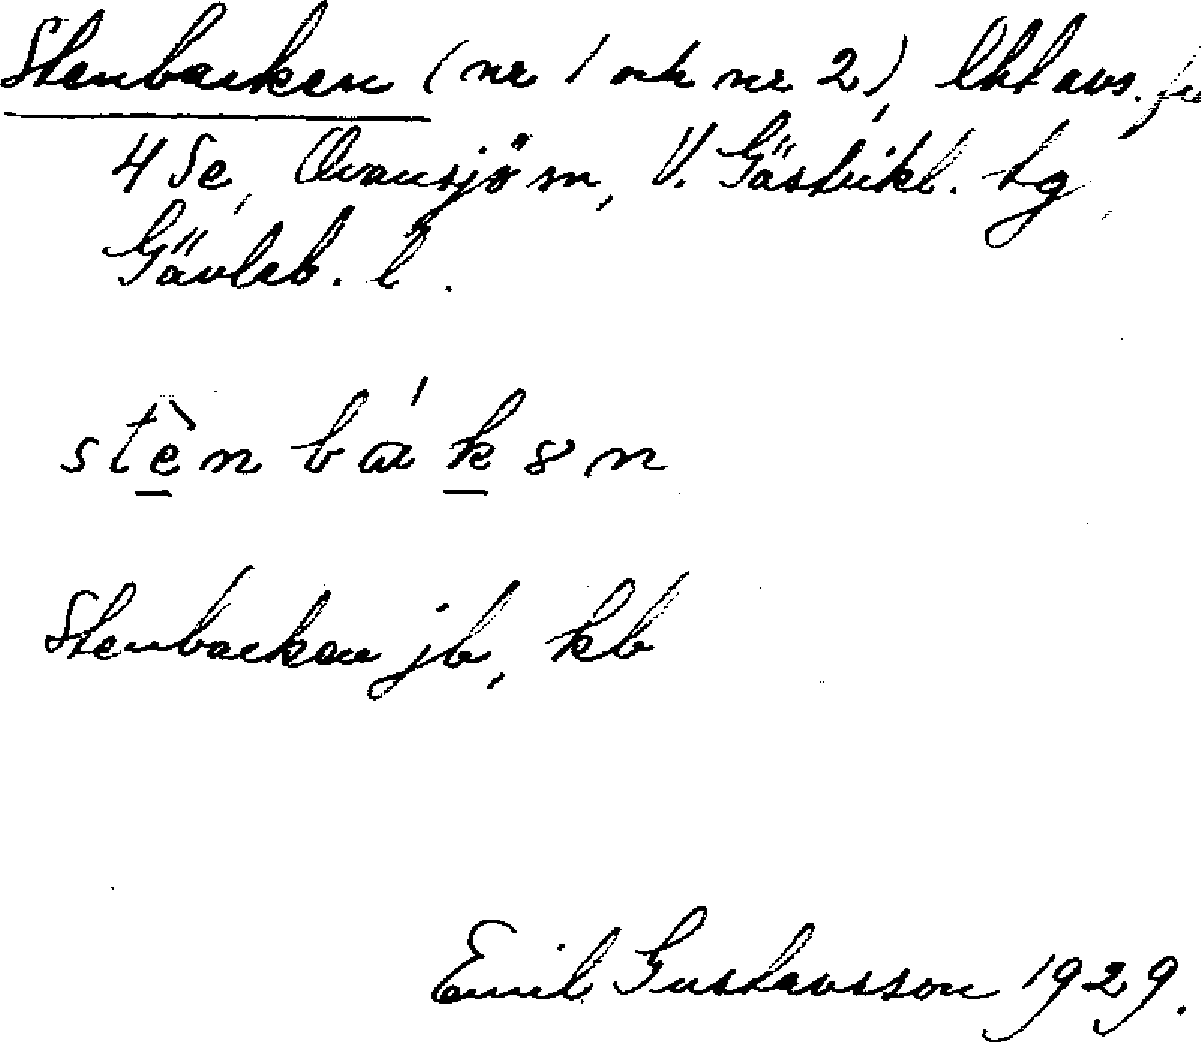 Stenbacken (nr 1 och nr 2), lht avs. fr
4 Se, Ovansjö sn, V. Gästrikl. tg
Gävleb. l.
stè̱n báḵən
Stenbacken jb, kb
Emil Gustavsson 1929.